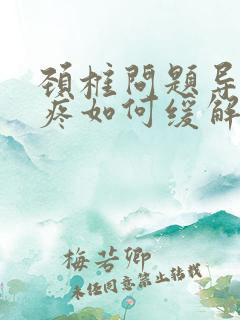 颈柱问题导
疼如何缓解
梅若卿
未经同意禁止转载